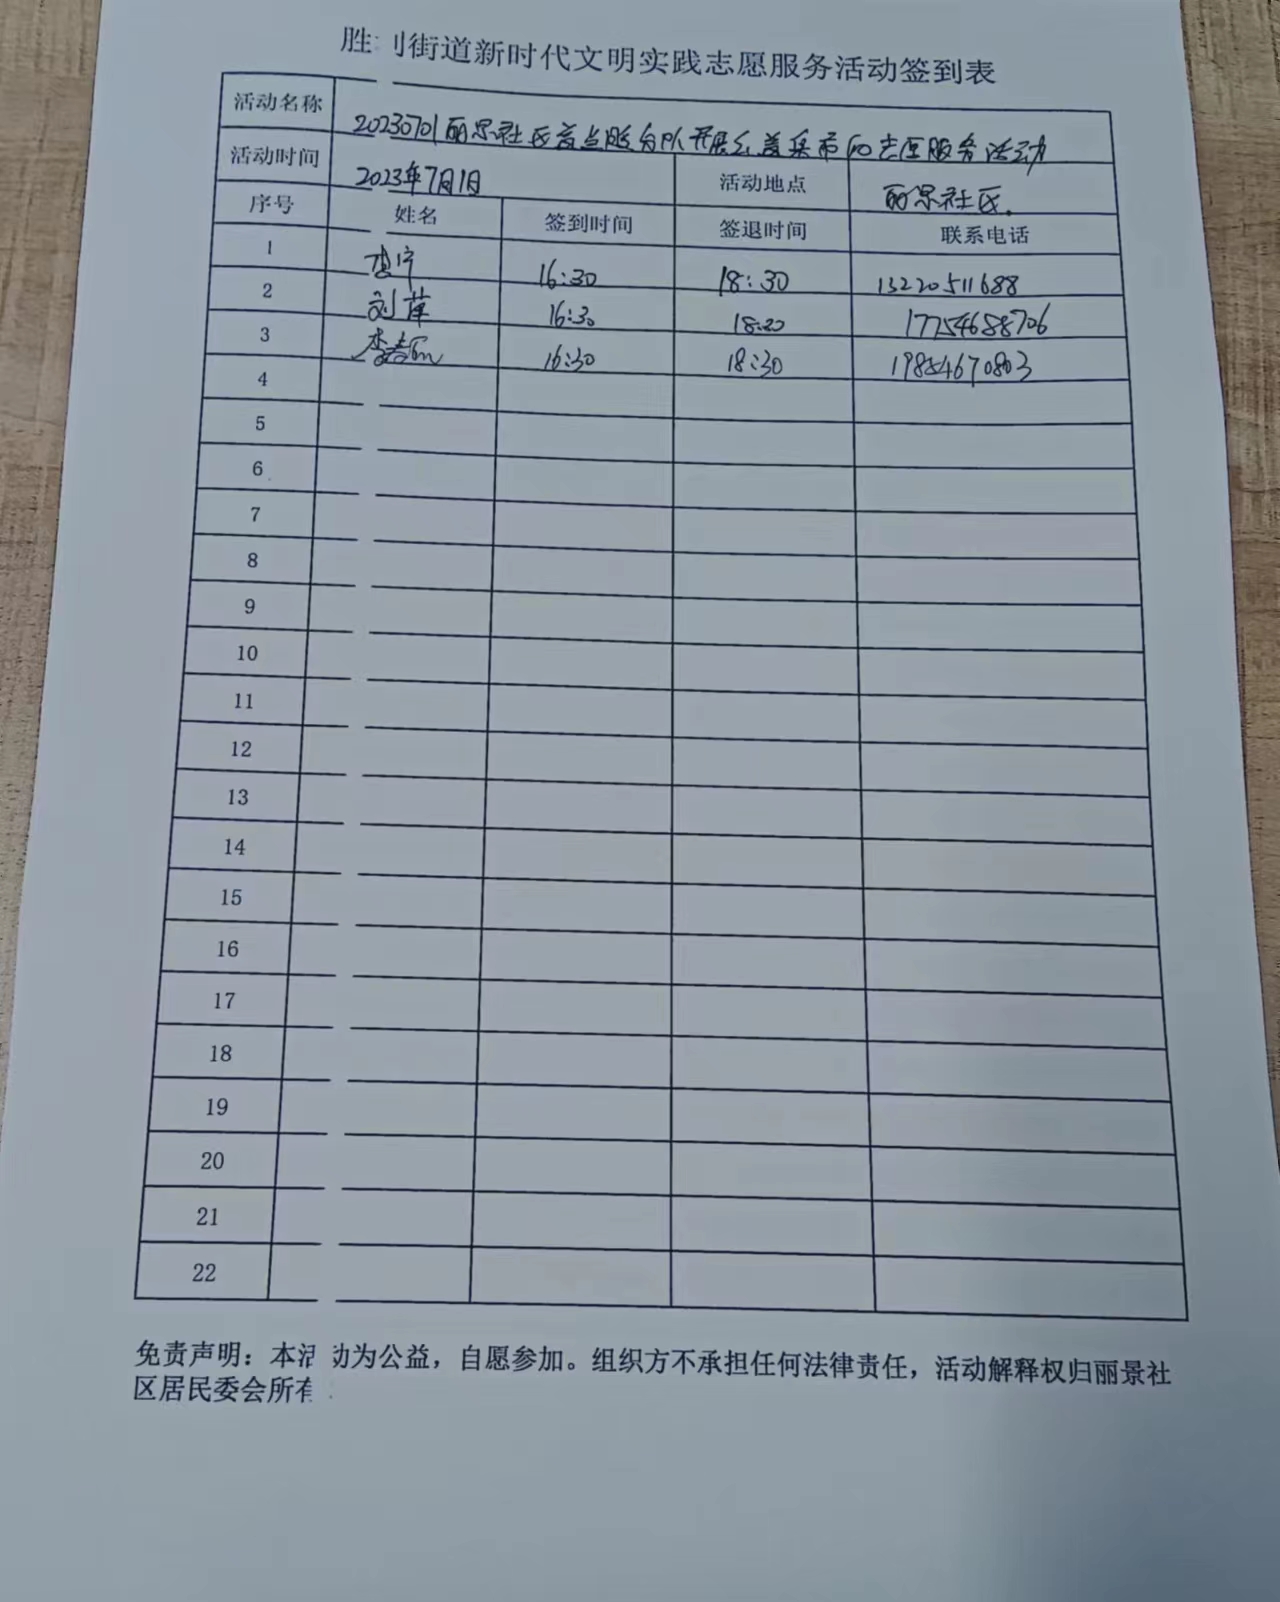 胜利街道新时代文明实践志愿服务活动签到表
活动名称 20230701丽景社区 开展公益集市的志愿服务活动
活动时间 2023年7月1日 活动地点 丽景社区.
序号 姓名 签到时间 签退时间 联系电话
1 李宁 16:30 18:30 13220511688
2 刘萍 16:30 18:20 17754688706
3 李春 16:30 18:30 19854670803
4
5
6
7
8
9
10
11
12
13
14
15
16
17
18
19
20
21
22
免责声明：本活动为公益，自愿参加。组织方不承担任何法律责任，活动解释权归丽景社
区居民委会所有